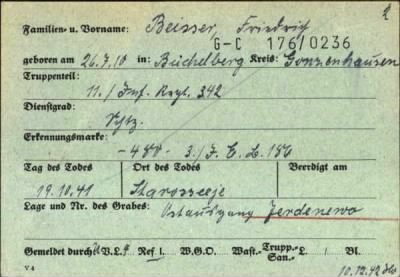 2
Familien- u. Vorname: Beisser, Friedrich
G-C 176/0236
geboren am 26.7.10 in: Büchelberg Kreis: Gunzenhausen
Truppenteil:
11./Inf. Regt. 342
Dienstgrad:
Schtz.
Erkennungsmarke:
-480- 3./J.E.B. 186
Tag des Todes Ort des Todes Beerdigt am
19.10.41 Starosseeje
Lage und Nr. des Grabes: Ostausgang Ferdenewo
Gemeldet durch: V.L. Ref 1. W.G.O. Wast.- Trupp.- San.- L. Bl.
V 4
10.12.42